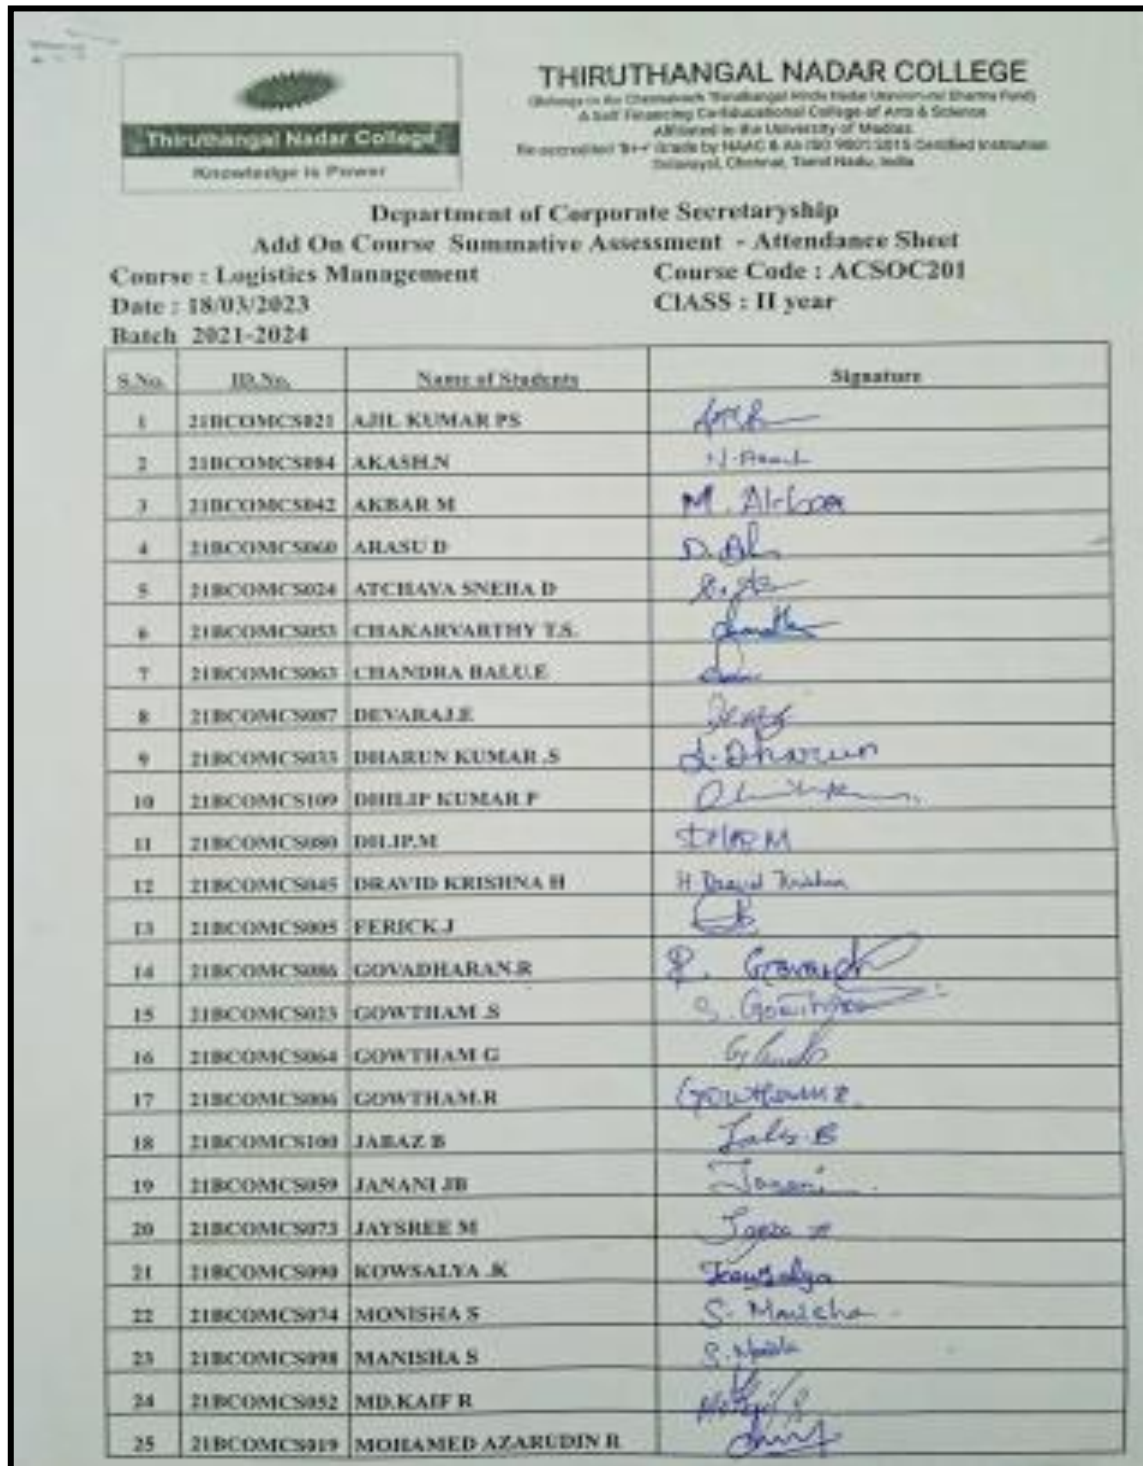 THIRUTHANGAL NADAR COLLEGE
(Belongs to the Chennaivazh Thiruthangal Hindu Nadar Uravinmurai Dharma Fund)
A Self Financing Co-Educational College of Arts & Science
Affiliated to the University of Madras
Re-accredited 'B++' Grade by NAAC & An ISO 9001:2015 Certified Institution
Selavayal, Chennai, Tamil Nadu, India
Thiruthangal Nadar College
Knowledge is Power
Department of Corporate Secretaryship
Add On Course Summative Assessment - Attendance Sheet
Course : Logistics Management Course Code : ACSOC201
Date : 18/03/2023 ClASS : II year
Batch 2021-2024
S.No. ID.No. Name of Students Signature
1 21BCOMCS021 AJIL KUMAR PS
2 21BCOMCS084 AKASH.N
3 21BCOMCS042 AKBAR M M. Akbar
4 21BCOMCS060 ARASU D
5 21BCOMCS024 ATCHAYA SNEHA D
6 21BCOMCS053 CHAKARVARTHY T.S.
7 21BCOMCS063 CHANDRA BALU.E
8 21BCOMCS087 DEVARAJ.E
9 21BCOMCS033 DHARUN KUMAR .S S. Dharun
10 21BCOMCS109 DHILIP KUMAR P
11 21BCOMCS080 DILIP.M
12 21BCOMCS045 DRAVID KRISHNA H H. Dravid Krishna
13 21BCOMCS005 FERICK.J
14 21BCOMCS086 GOVADHARAN.R
15 21BCOMCS023 GOWTHAM .S
16 21BCOMCS064 GOWTHAM G
17 21BCOMCS006 GOWTHAM.R
18 21BCOMCS100 JABAZ B
19 21BCOMCS059 JANANI JB Janani
20 21BCOMCS073 JAYSREE M
21 21BCOMCS090 KOWSALYA .K Kowsalya
22 21BCOMCS074 MONISHA S
23 21BCOMCS098 MANISHA S
24 21BCOMCS052 MD.KAIF R
25 21BCOMCS019 MOHAMED AZARUDIN R